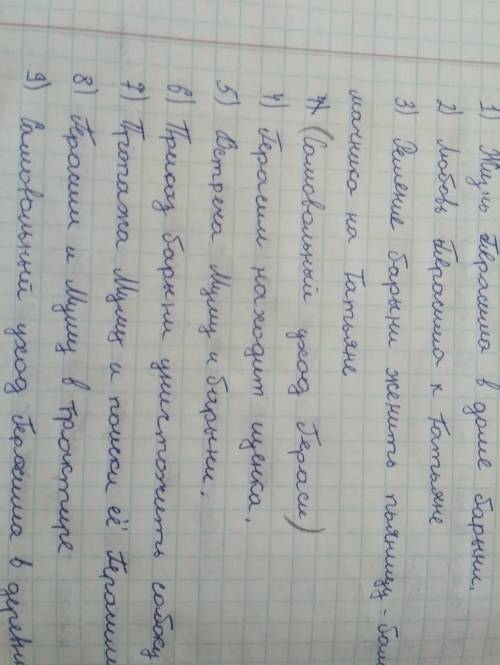 1) Жизнь Герасима в доме барыни.
2) Любовь Герасима к Татьяне
3) Решение барыни женить пьяницу-баш
мачника на Татьяне
(Самовольный уход Гераси)
4) Герасим находит щенка.
5) Встреча Муму и барыни.
6) Приказ барыни уничтожить собаку
7) Пропажа Муму и поиски её Герасим
8) Герасим и Муму в трактире
9) Самовольный уход Герасима в деревн